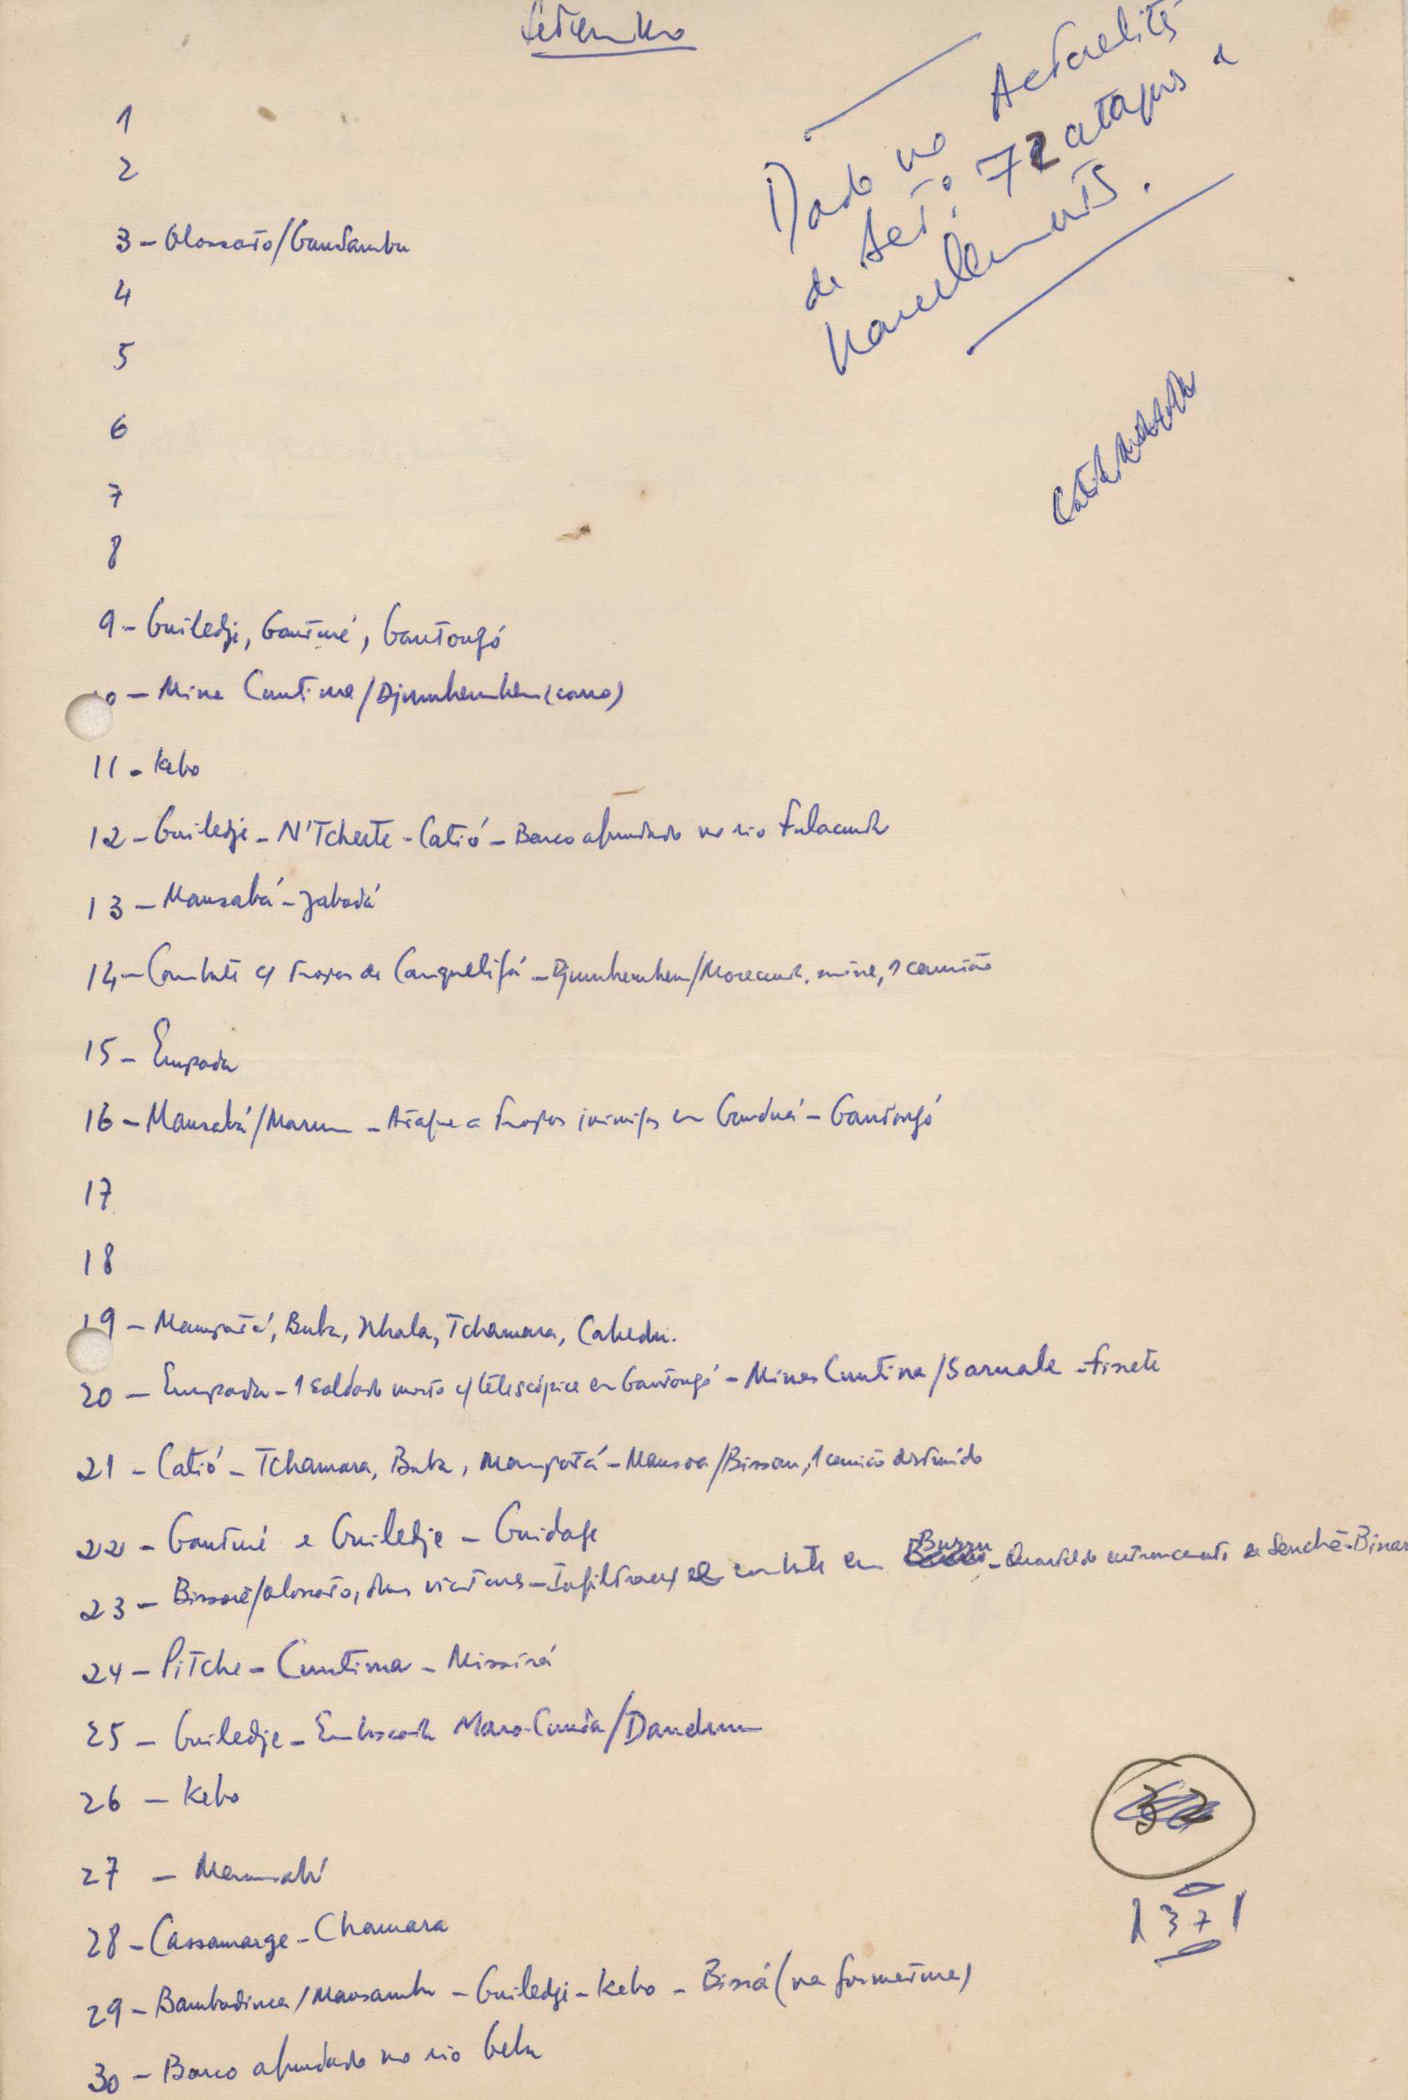 Setembro
Dado no Actualités
de Set. 72 ataques e
harcelements.
1
2
3 - Olossato/Gansambu
4
5
6
7
8
9 - Guiledje, Ganturé, Gantongó
10 - Mina Cuntima/Djumbembem (carro)
11 - Kebo
12 - Guiledje - N'Tcherte - Catió - Barco afundado no rio Fulacunda
13 - Mansabá - Jabadá
14 - Combate c/ tropas de Canquelifá - Djumbembem/Morecund. mina, 1 camião
15 - Empada
16 - Mansabá/Marum - Ataque a tropas inimigas em Ganduá - Gantongó
17
18
19 - Mampatá, Buba, Nhala, Tchamara, Cabedu.
20 - Empada - 1 soldado morto c/ telescópica em Gantongó - Minas Cuntima/Saruale - Fissete
21 - Catió - Tchamara, Buba, Mampatá - Mansoa/Bissau, 1 camião destruído
22 - Ganturé e Guiledje - Guidage
23 - Bissorã/Olossato, duas viaturas - combate em Bursu - Quartel do entroncamento de Senchē-Bissau
24 - Pitche - Cuntima - Missirá
25 - Guiledje - Emboscada Maro-Cunda/Dandum
26 - Kebo
27 - Mansabá
28 - Cassamange - Chamara
29 - Bambadinca/Mansambu - Guiledje - Kebo - Bissá (na formatura)
30 - Barco afundado no rio Geba
32
1371